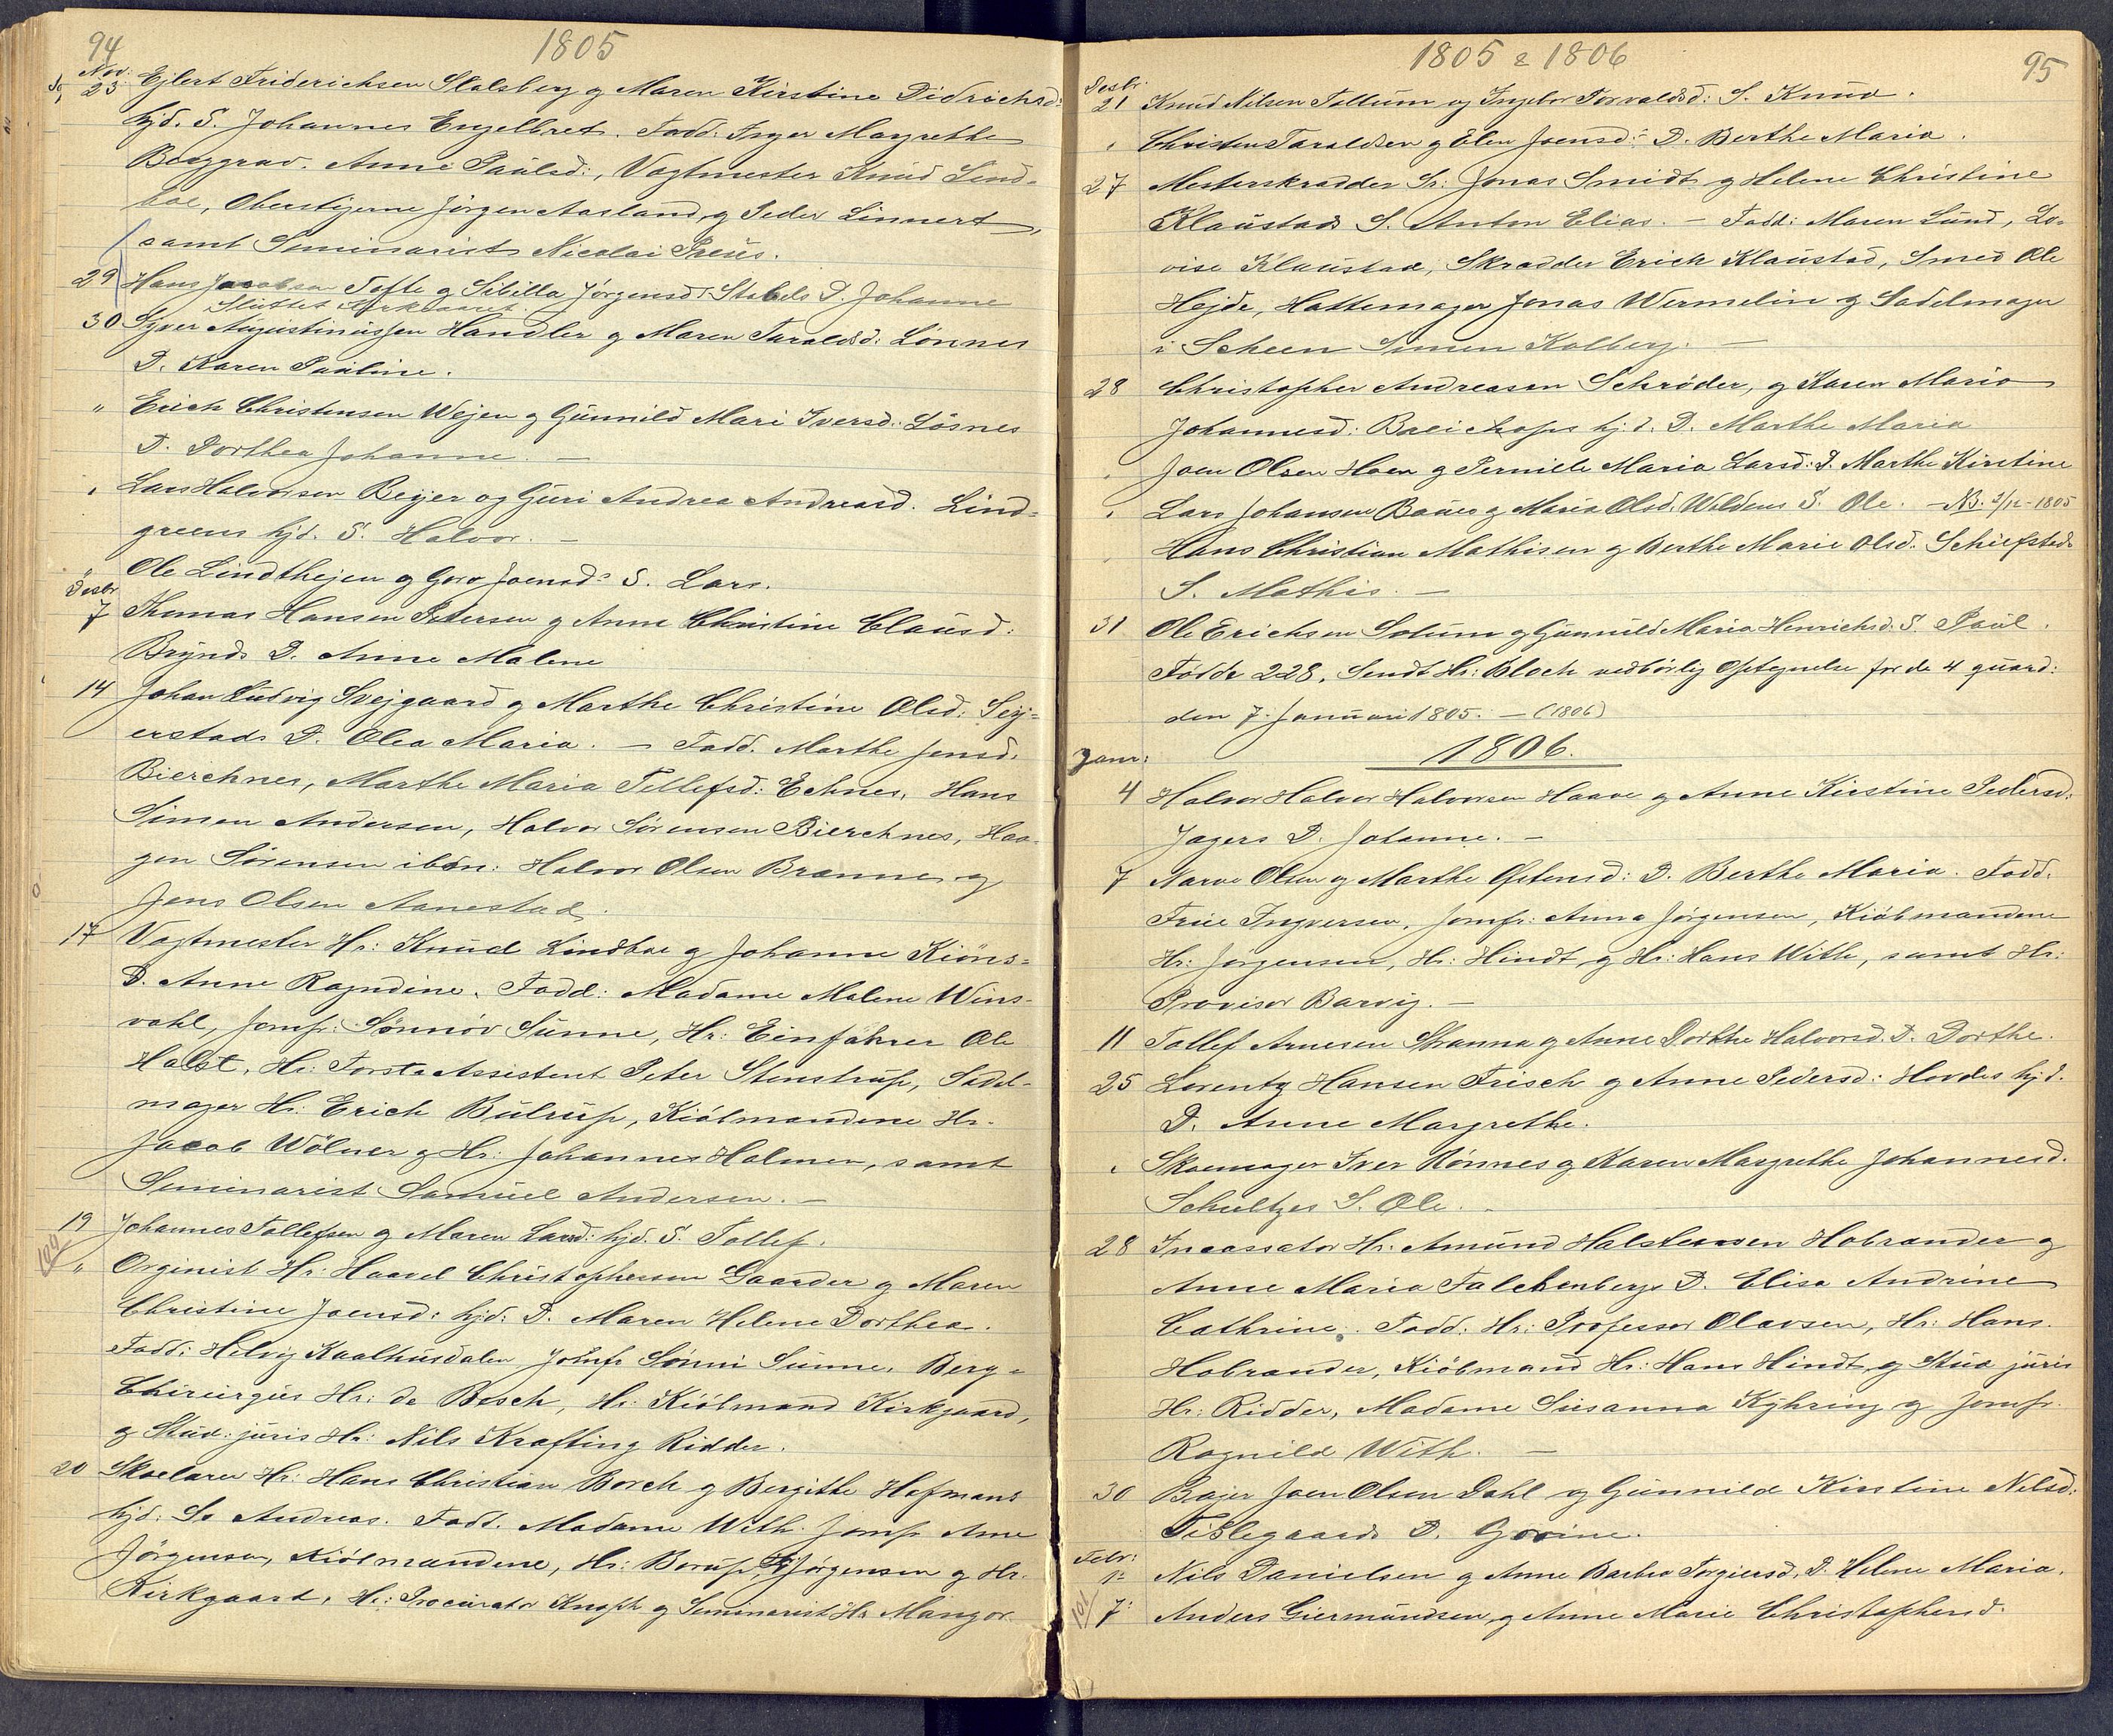 94
1805
Nov:
23 Ejlert Friderichsen Stalsberg og Maren Kirstine Didrichsd:
hjd. S. Johannes Engelbret. Fadd. Inger Margrethe
Berggrav. Anne Paulsd:, Vagtmester Knud Lind-
boe, Oberstigerne Jørgen Aasland, og Peder Linnert,
samt Seminarist Nicolai Preus.
29 Hans Jacobsen Tofte og Sibilla Jørgensd: Stabels D. Johanne
Sluttet Kirkeaaret.
30 Syver Augustinussen Handler og Maren Taraldsd: Lønnes
D. Karen Pauline.
" Erich Christensen Wejen og Gunnild Mari Iversd. Løsnes
D. Dorthea Johanne. —
" Lars Halvorsen Bejer og Guri Andrea Andreasd. Lind-
green hjd. S. Halvor. —
Ole Lindthejen og Goro Joensd: S. Lars.
Desbr
7 Thomas Hansen Petersen og Anne Christine Clausd:
Brynds D. Anne Malene
14 Johan Ludvig Svejgaard og Marthe Christine Olsd: Sej-
erstads D. Olea Maria. — Fadd. Marthe Jensd.
Bierchnes, Marthe Maria Tellefsd: Echnes, Hans
Simon Andersen, Halvor Sørensen Bierchnes, Haa-
gen Sørensen ibdn: Halvor Olsen Brænne og
Jens Olsen Aanestad.
17 Vagtmester Hr: Knud Lindboe og Johanne Kiøns-
D. Anne Ragndine. Fadd: Madame Malene Wins-
vohl, Jomfr: Sønnøv Sunne, Hr: Einfahrer Ole
Holst, Hr: Forst-Assistent Peter Stenstrup, Sadel-
mager Hr: Erich Bulrup, Kiøbmændene Hr.
Jacob Wølner og Hr: Johannes Holmen, samt
Seminarist Samuel Andersen. —
19 Johannes Tollefsen og Maren Larsd: hjd. S. Tollef.
" Orginist Hr: Haavel Christophersen Gaarder og Maren
Christine Joensd: hjd: D. Maren Helene Dorthea.
Fadd: Helvig Kaalhusdalen Jomfr Sønni Sunne, Berg-
Chirurgus Hr: de Besch, Hr: Kiøbmand Kirkgaard,
og Stud: juris Hr: Nils Krafting Ridder.
20 Skoelærer Hr: Hans Christian Borch og Bergithe Hofmans
hjd: Sø Andreas. Fadd. Madame With. Jomfr Ane
Jørgensen, Kiøbmændene, Hr: Borup, Hr Jørgensen og Hr.
Kirkgaard, Hr: Procurator Knoph og Seminarist Hr Mangor.
1805 & 1806
95
Desbr:
21 Knud Nilsen Tollum og Ingebor Torvaldsd: S. Knud.
" Christen Taraldsen og Elen Joensd: D. Berthe Maria.
27 Mesterskrædder Sr: Jonas Smidt og Helene Christine
Klaustads S. Anton Elias. — Fadd: Maren Lund, Lo-
vise Klaustad, Skrædder Erich Klaustad, Smed Ole
Hejde, Hattemager Jonas Wermelin og Sadelmager
i Scheen Simen Kolberg. —
28 Christopher Andreasen Schrøder, og Karen Maria
Johannesd: Breichops hjd. D. Marthe Maria
" Joen Olsen Hoen og Pernille Maria Larsd: D. Marthe Kirstine
" Lars Johansen Bauer og Maria Olsd. Woldens S. Ole. — NB. 2/12 - 1805
" Hans Christian Mathisen og Berthe Marie Olsd. Schiefsteds
S. Mathis. —
31 Ole Erichsen Solum og Gunnild Maria Henrichsd. S. Paul.
Fødde 228. Sendt Hr: Bloch vedbørlig Optegnelse for de 4 quard:
den 7. Januari 1805. — (1806)
1806.
Janr:
4 Halvor Halvor Halvorsen Haave og Anne Kirstine Pedersd:
Jægers D. Johanne. —
7 Narve Olsen og Marthe Østensd: D. Berthe Maria. Fadd.
Frue Ingversen, Jomfr: Anna Jørgensen, Kiøbmændene
Hr: Jørgensen, Hr: Hindt, og Hr: Hans With, samt Hr:
Provisor Barvig. —
11 Tollef Arnesen Stranna og Anne Dorthe Halvorsd. D. Dorthe.
25 Lorentz Hansen Frisch og Anne Pedersd: Hovdes hjd.
D. Anne Margrethe.
" Skoemager Iver Rønnes og Karen Margrethe Johannesd.
Schultzes S. Ole. —
28 Incassator Hr: Amund Halstensen Hobrander og
Anne Maria Falchenbergs D. Elisa Andrine
Cathrine. Fadd: Hr: Professor Olavsen, Hr: Hans
Hobrander, Kiøbmand Hr: Hans Hindt og Stud juris
Hr: Ridder, Madame Susanna Kyhring og Jomfr.
Ragnild With. —
30 Bajer Joen Olsen Dahl og Gunnild Kirstine Nilsd:
Tislegaards D. Gorine.
Febr:
1 Nils Danielsen og Anne Barbro Torgiersd. D. Helene Maria.
7 Anders Giermundsen, og Anne Marie Christophersd.